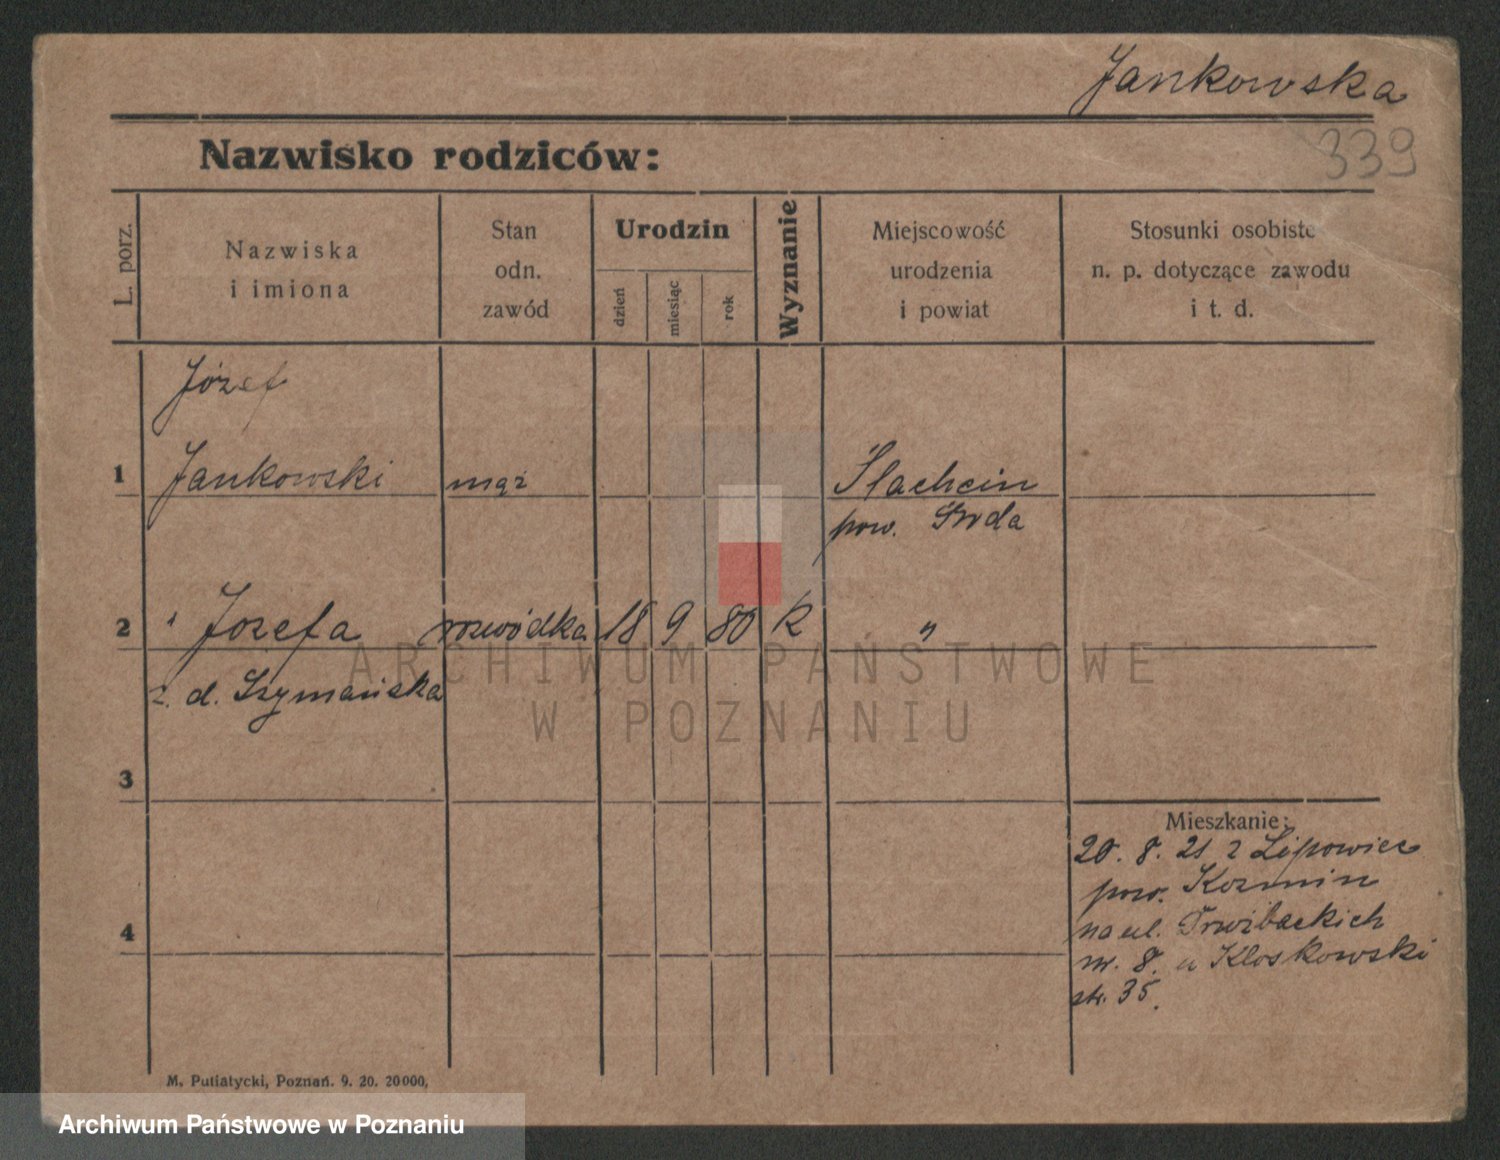 Jankowska
339
Nazwisko rodziców:
L. porz.
Nazwiska
i imiona
Stan
odn.
zawód
Urodzin
dzień
miesiąc
rok
Wyznanie
Miejscowość
urodzenia
i powiat
Stosunki osobiste
n. p. dotyczące zawodu
i t. d.
Józef
1 Jankowski mąż Słachcin
pow. Środa
2 Józefa rozwódka 18 9 80 K "
z. d. Szymańska
3
Mieszkanie:
20. 8. 21 z Lipowiec
pow. Kozmin
4 na ul.
nr. 8. u Kloskowski
str. 35.
M. Putiatycki, Poznań. 9. 20. 20000,
ARCHIWUM PAŃSTWOWE
W POZNANIU
Archiwum Państwowe w Poznaniu